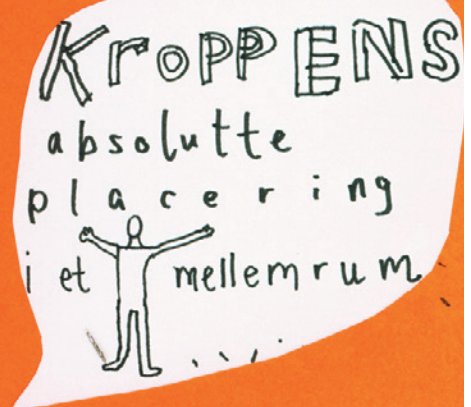 KroPPENS
absolutte
placering
i et mellemrum